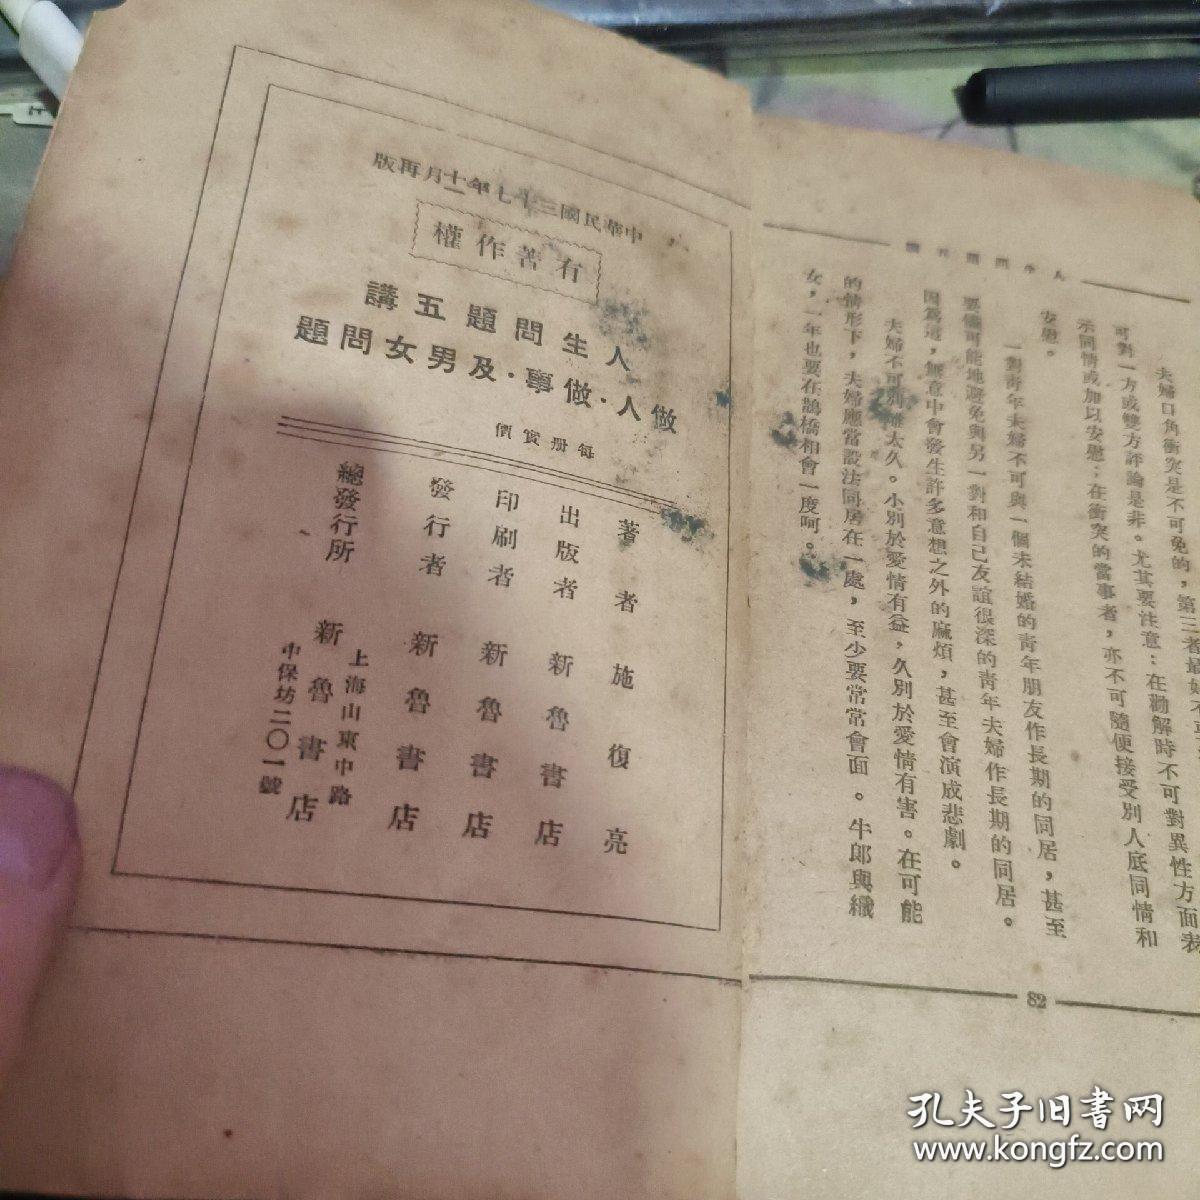 人生問題五講
夫婦口角衝突是不可免的，第三者最好不
可對一方或雙方評論是非。尤其要注意：在勸解時不可對異性方面表
示同情或加以安慰；在衝突的當事者，亦不可隨便接受別人底同情和
安慰。
一對青年夫婦不可與一個未結婚的青年朋友作長期的同居，甚至
要儘可能地避免與另一對和自己友誼很深的青年夫婦作長期的同居。
因爲這，無意中會發生許多意想之外的麻煩，甚至會演成悲劇。
夫婦不可別離太久。小別於愛情有益，久別於愛情有害。在可能
的情形下，夫婦應當設法同居在一處，至少要常常會面。牛郎與織
女，一年也要在鵲橋相會一度呵。
82
中華民國三十七年十一月再版
有著作權
人生問題五講
做人·做事·及男女問題
每册實價
著者 施復亮
出版者 新魯書店
印刷者 新魯書店
發行者 新魯書店
總發行所 新魯書店
上海山東中路
中保坊二〇一號
孔夫子旧书网
www.kongfz.com